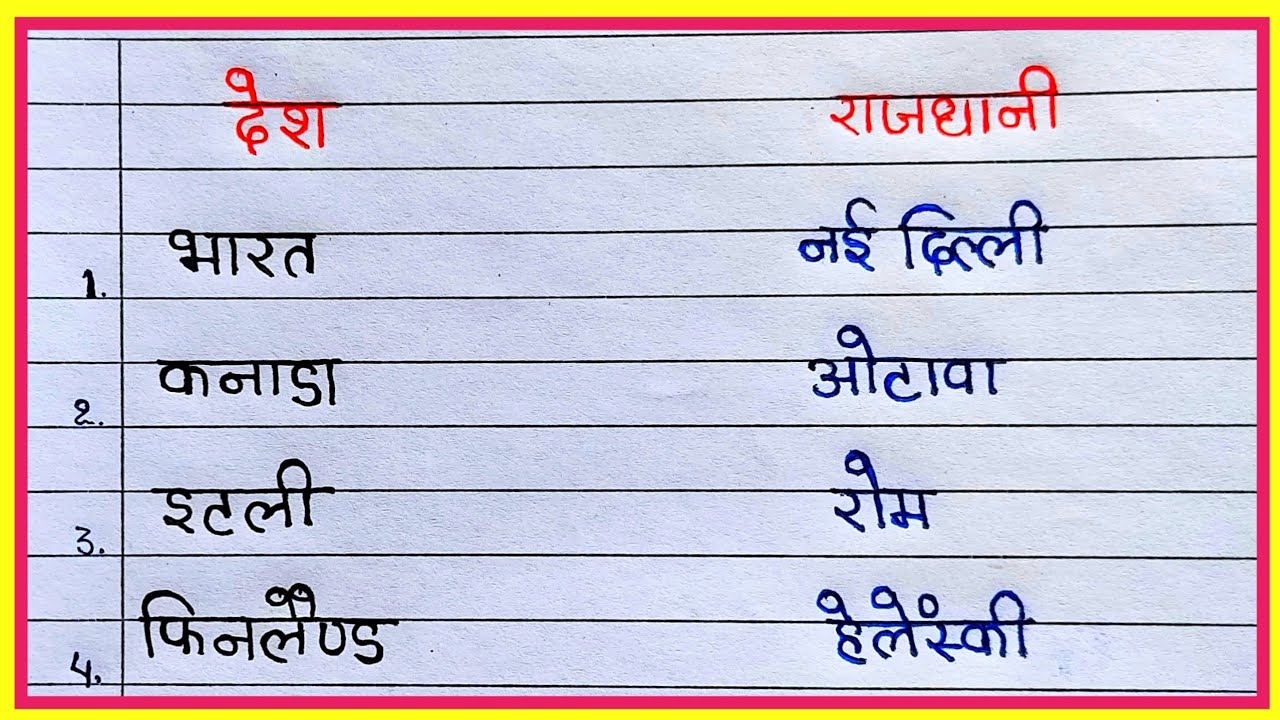 देश राजधानी
1. भारत नई दिल्ली
2. कनाडा ओटावा
3. इटली रोम
4. फिनलैण्ड हेलेंस्की